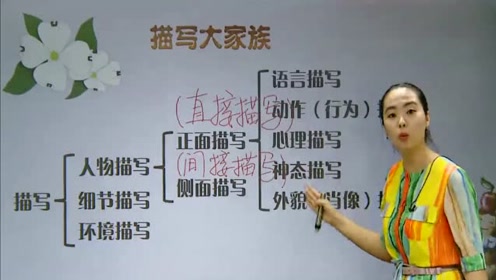 描写大家族
语言描写
(直接描写)
动作（行为）
正面描写
心理描写
人物描写
(间接描写)
神态描写
侧面描写
描写
细节描写
外貌（肖像）
环境描写